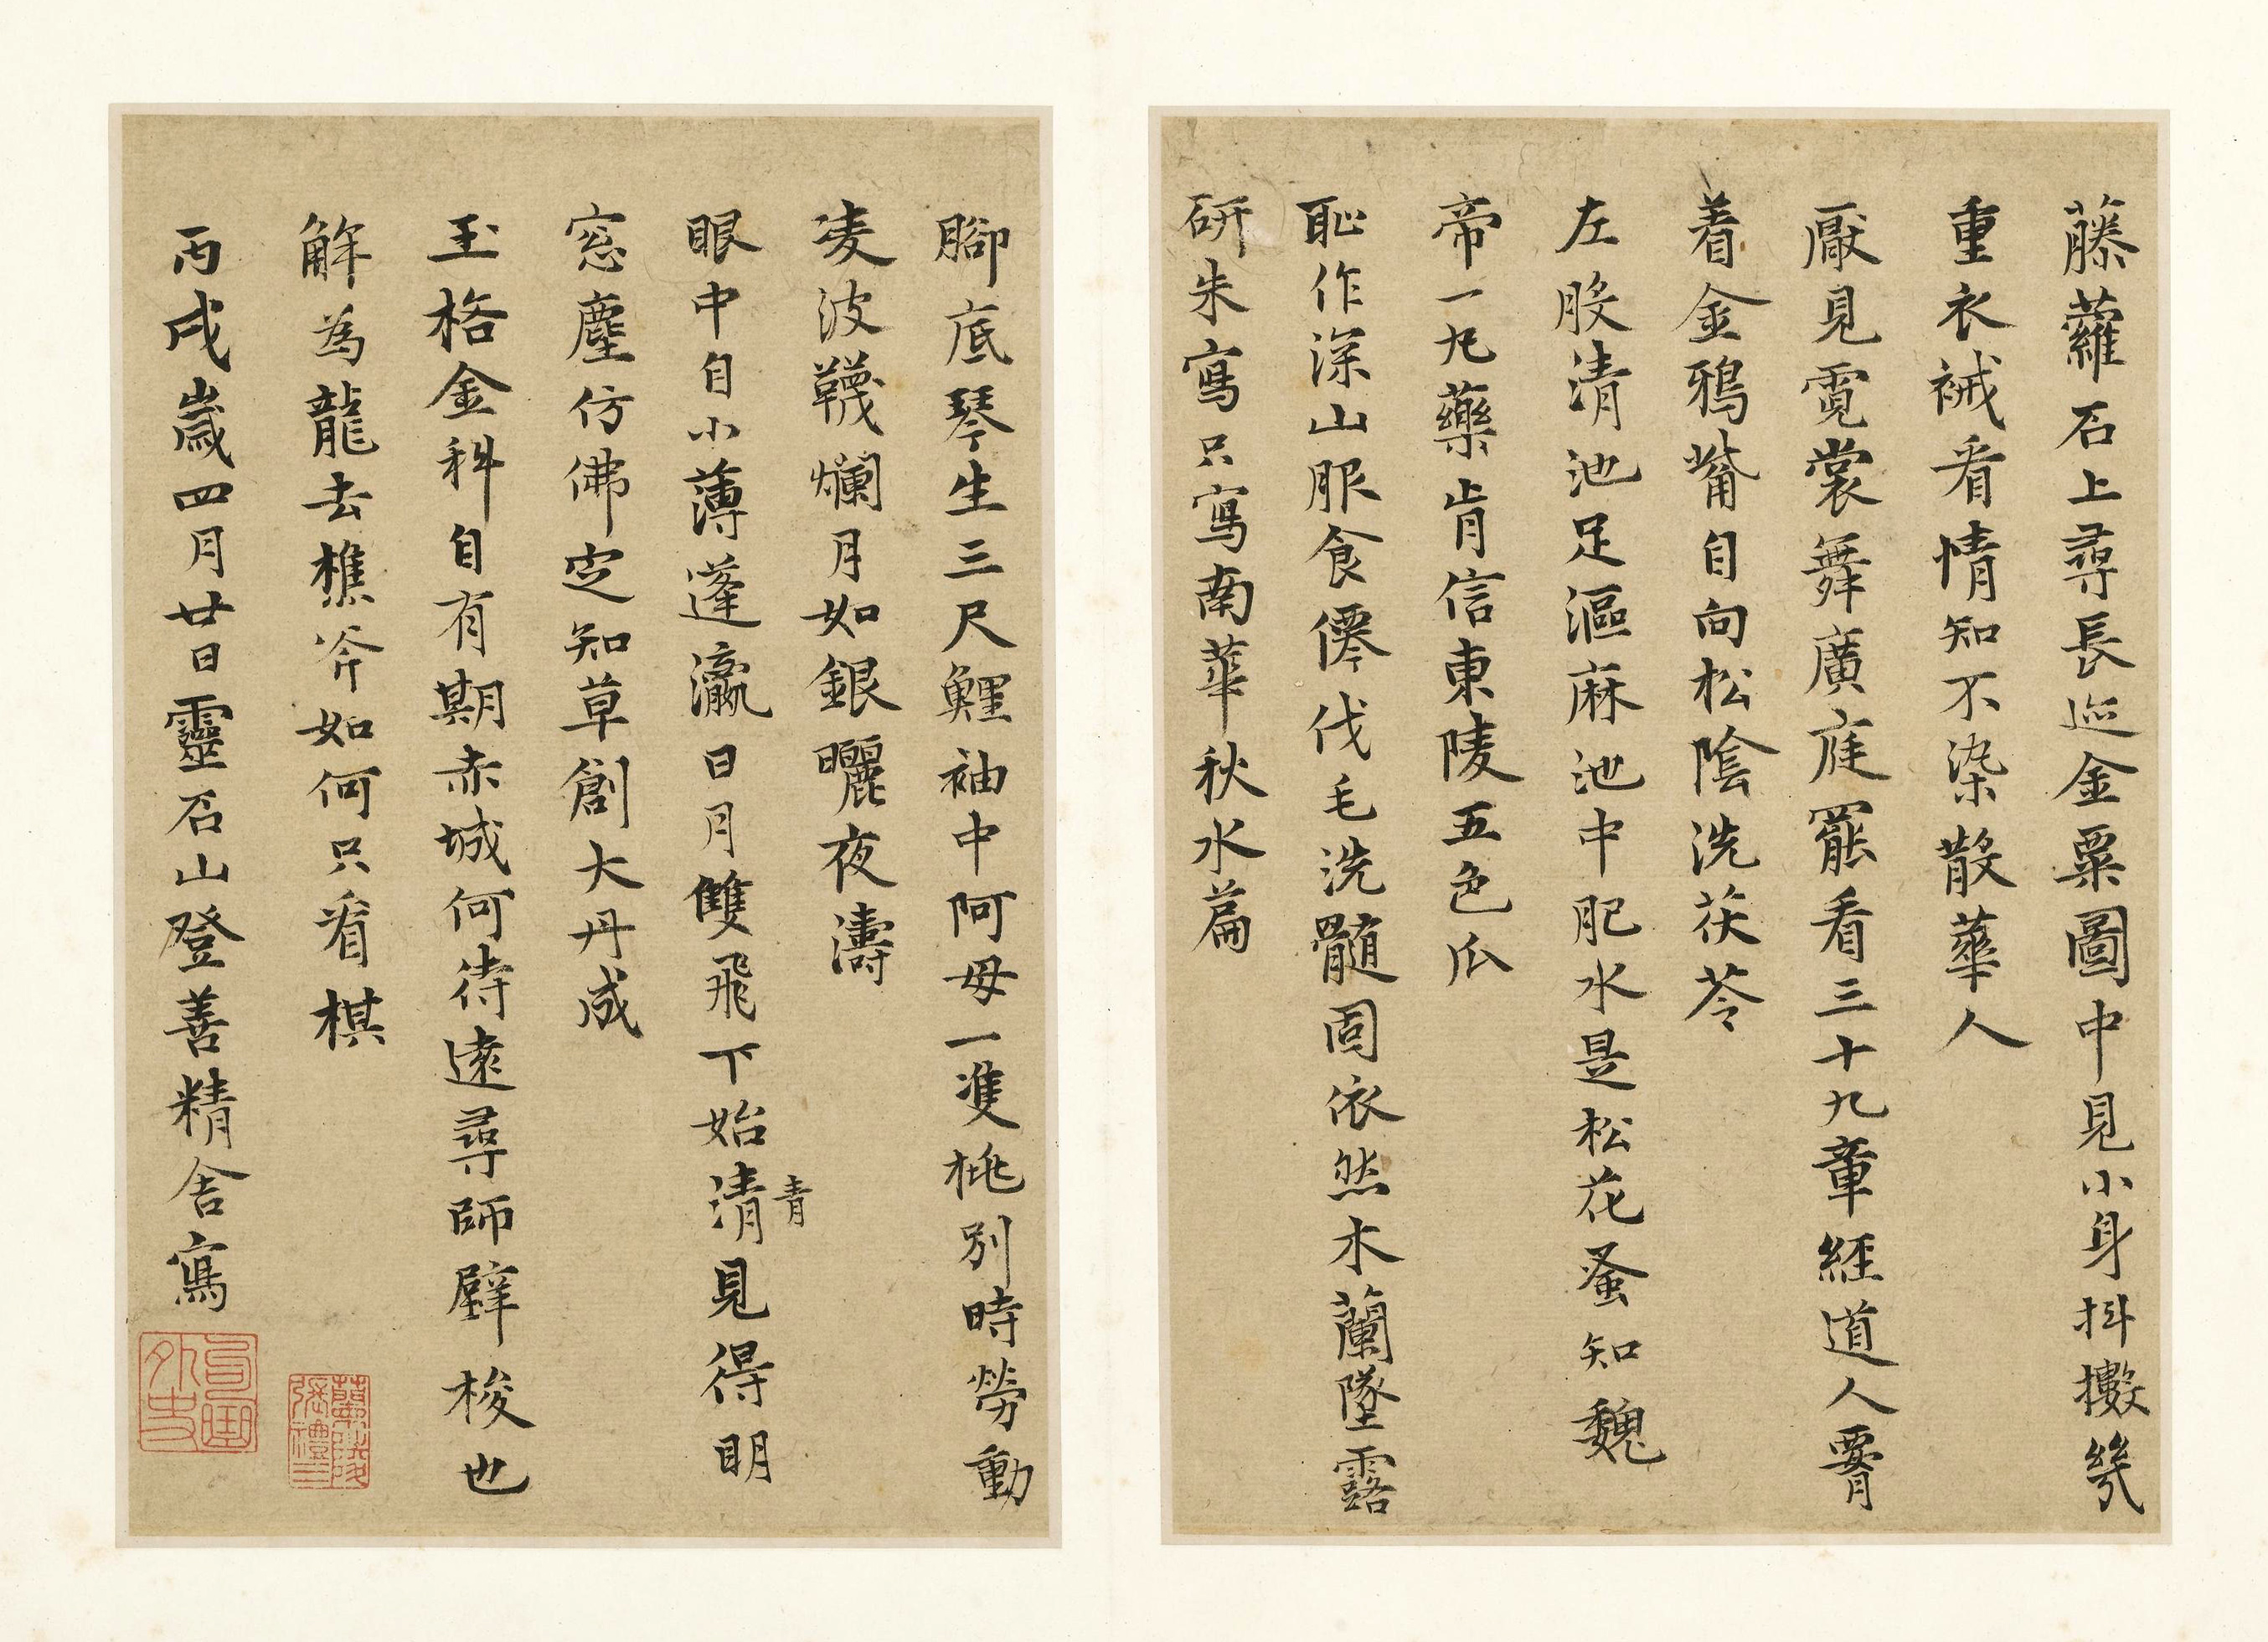 藤蘿石上尋長巡金粟圖中見小身抖擻幾
重衣祴看情知不染散華人
厭見霓裳舞廣庭罷看三十九章經道人臂
着金鴉觜自向松陰洗茯苓
左股清池足漚麻池中肥水是松花蚤知魏
帝一丸藥肯信東陵五色瓜
恥作深山服食僊伐毛洗髓固依然木蘭墜露
研朱寫只寫南華秋水篇
腳底琴生三尺鯉袖中阿母一雙桃別時勞動
凌波韈爛月如銀曬夜濤
眼中自小薄蓬瀛日月雙飛下始清見得明
青
窓塵仿佛定知草創大丹成
玉格金科自有期赤城何待遠尋師壁梭也
解為龍去樵斧如何只看棋
丙戌歲四月廿日靈石山登善精舍寫